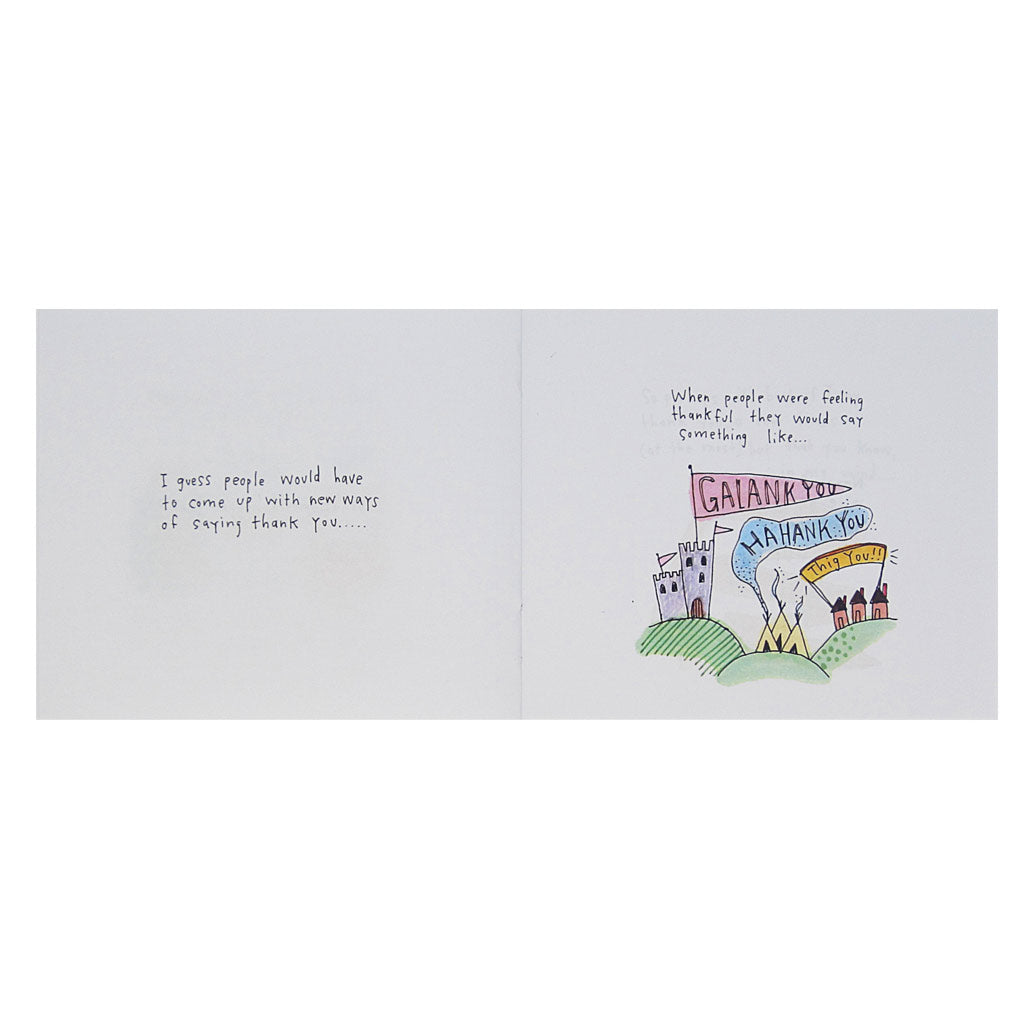 I guess people would have
to come up with new ways
of saying thank you.....
When people were feeling
thankful they would say
something like...
GALANK YOU
HAHANK YOU
Thig You!!